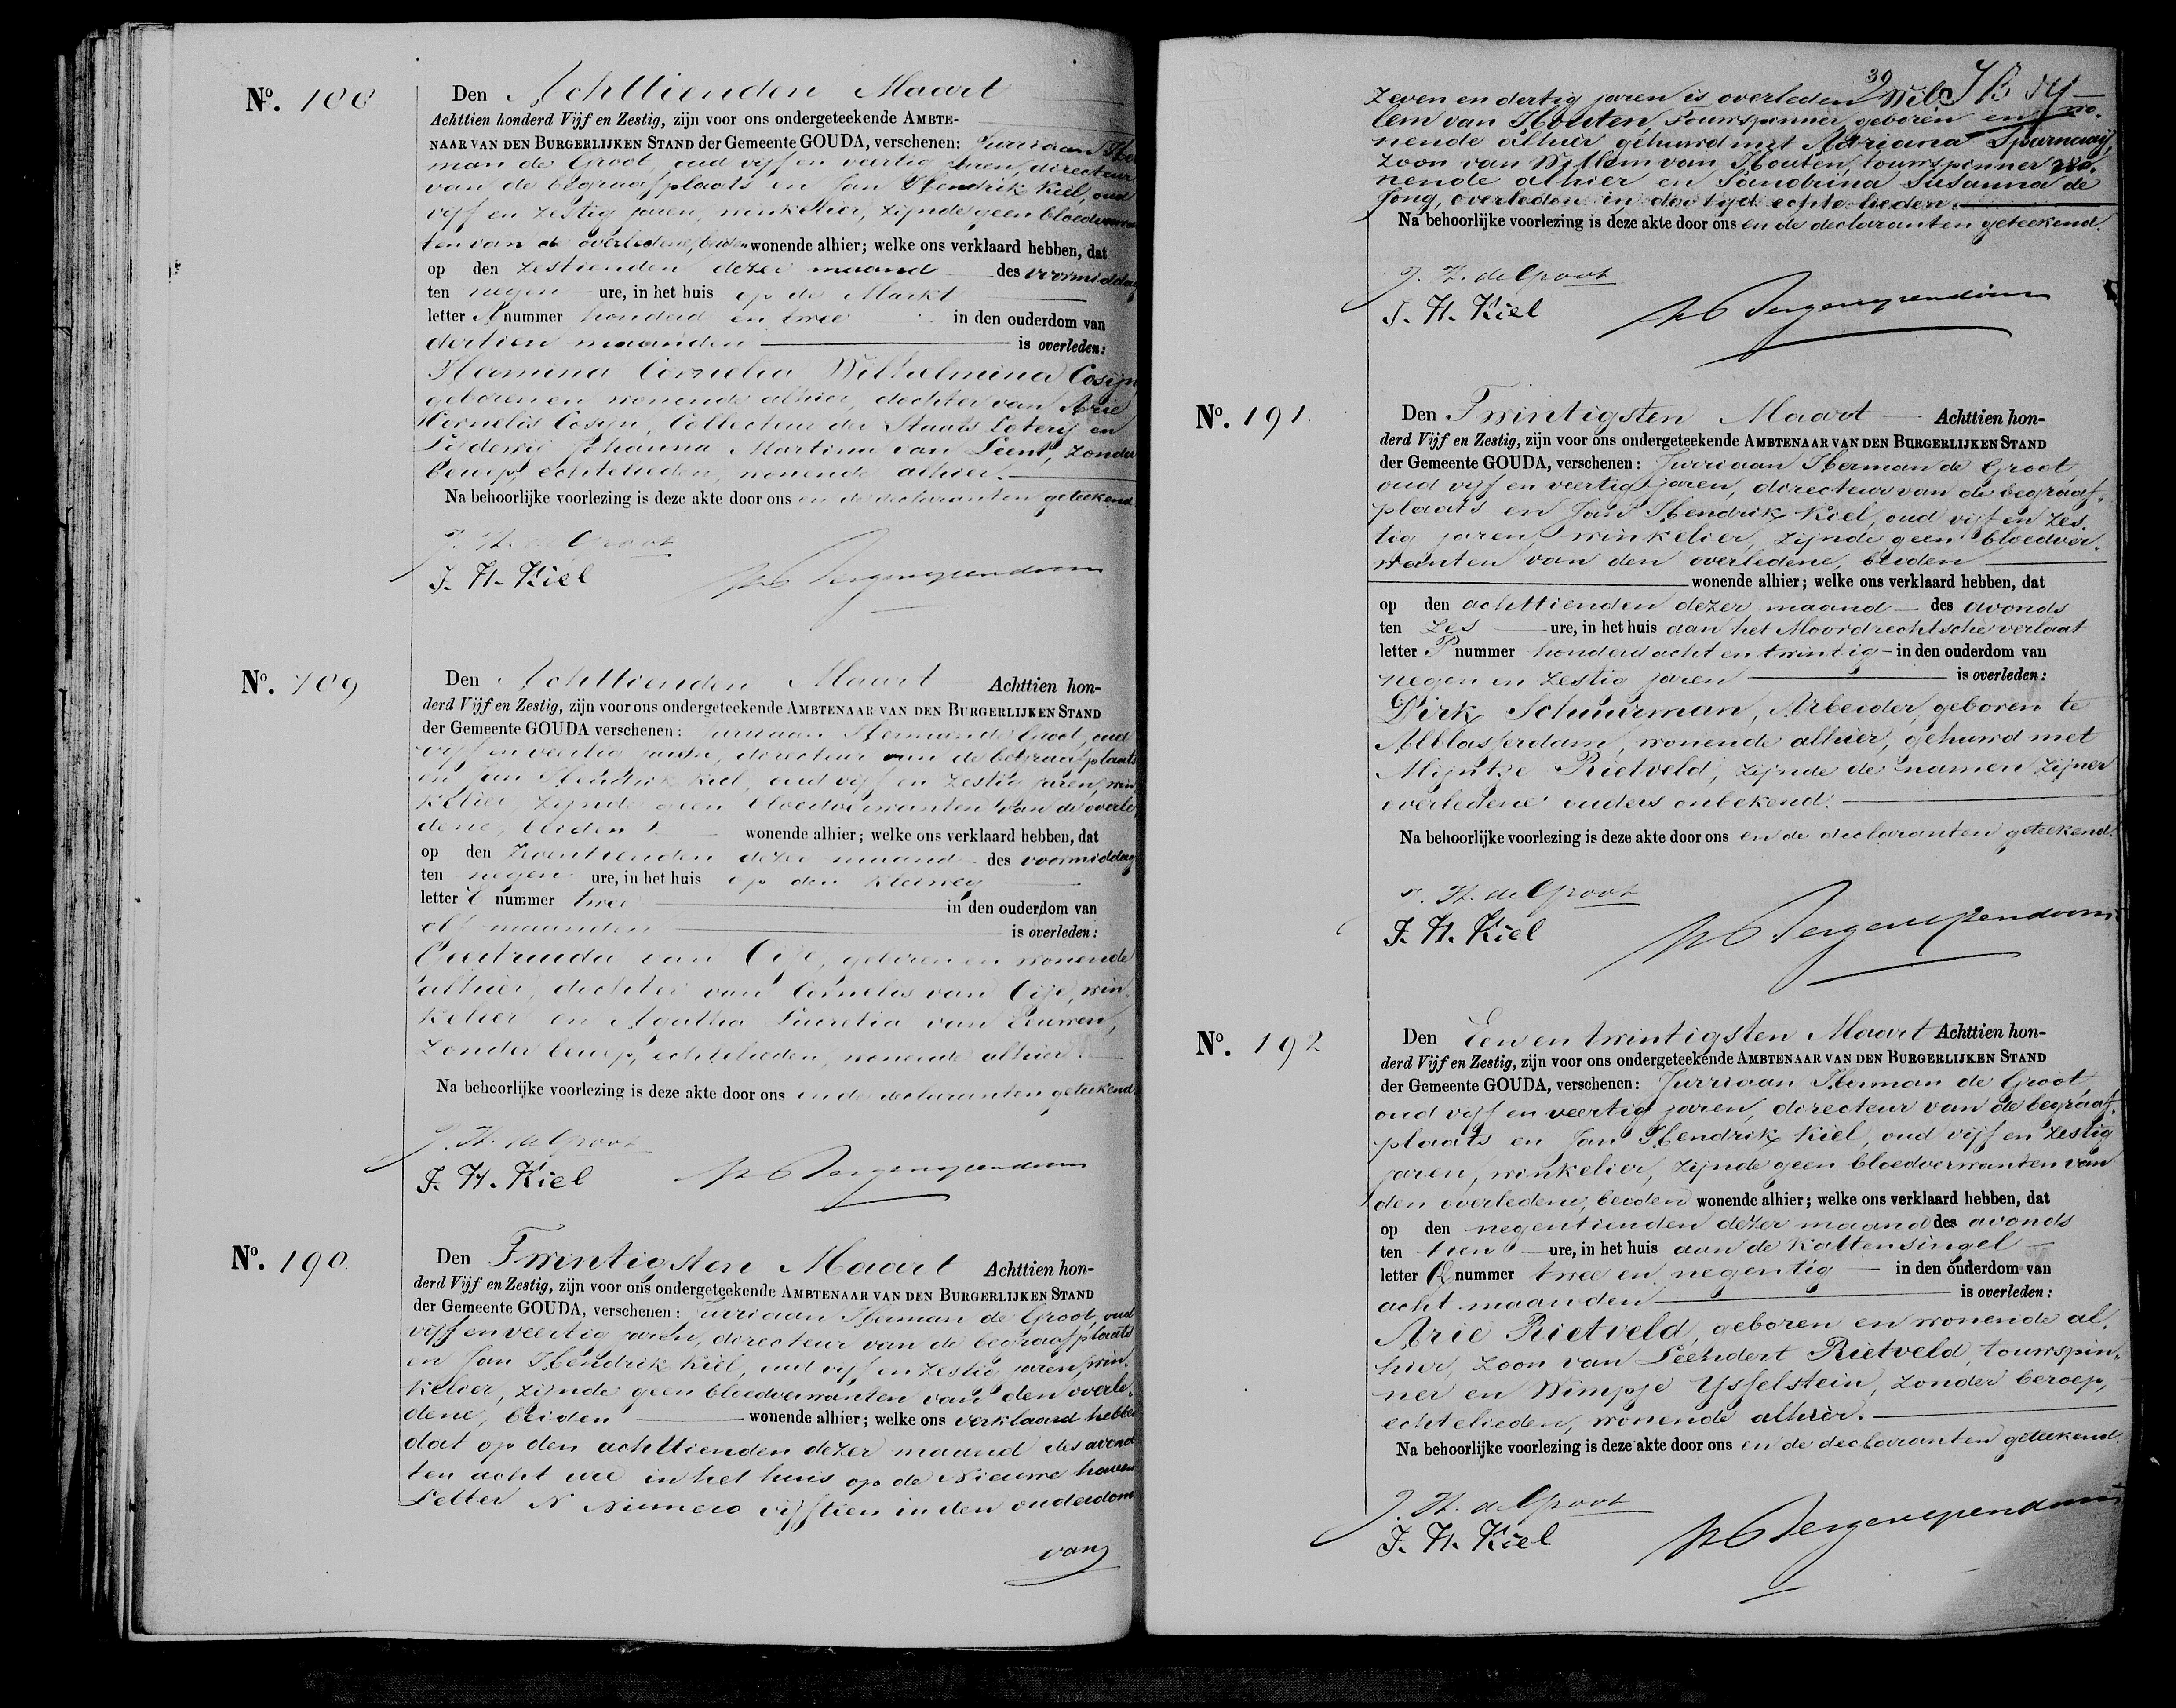 No. 188
Den Achttienden Maart
Achttien honderd Vijf en Zestig, zijn voor ons ondergeteekende AMBTE-
NAAR VAN DEN BURGERLIJKEN STAND der Gemeente GOUDA, verschenen: Jurriaan Her
man de Groot, oud vijf en veertig jaren, directeur
van de begraafplaats en Jan Hendrik Kiel, oud
vijf en zestig jaren, winkelier, zijnde geen bloedverwan
ten van de overledene, beiden wonende alhier; welke ons verklaard hebben, dat
op den zestienden dezer maand des voormiddag
ten negen ure, in het huis op de Markt
letter A nummer honderd en twee in den ouderdom van
dertien maanden is overleden:
Hermina Cornelia Wilhelmina Cosijn
geboren en wonende alhier, dochter van Arie
Cornelis Cosijn, Collecteur der Staats Loterij en
Lijdewij Johanna Martina van Leent, zonder
beroep, echtelieden, wonende alhier.
Na behoorlijke voorlezing is deze akte door ons en de declaranten geteekend
J. H. de Groot
J. H. Kiel
No. 189
Den Achttienden Maart Achttien hon-
derd Vijf en Zestig, zijn voor ons ondergeteekende AMBTENAAR VAN DEN BURGERLIJKEN STAND
der Gemeente GOUDA verschenen: Jurriaan Herman de Groot, oud
vijf en veertig jaren, directeur van de begraafplaats
en Jan Hendrik Kiel, oud vijf en zestig jaren, win
kelier, zijnde geen bloedverwanten van de overle
dene, beiden wonende alhier; welke ons verklaard hebben, dat
op den zeventienden dezer maand des voormiddag
ten negen ure, in het huis op den Kleiweg
letter E nummer twee in den ouderdom van
elf maanden is overleden:
Geertruida van Eije, geboren en wonende
alhier, dochter van Cornelis van Eije, win
kelier en Agatha Lucretia van Leuwen,
zonder beroep, echtelieden, wonende alhier.
Na behoorlijke voorlezing is deze akte door ons en de declaranten geteekend.
J. H. de Groot
J. H. Kiel
No. 190.
Den Twintigsten Maart Achttien hon-
derd Vijf en Zestig, zijn voor ons ondergeteekende AMBTENAAR VAN DEN BURGERLIJKEN STAND
der Gemeente GOUDA, verschenen: Jurriaan Herman de Groot, oud
vijf en veertig jaren, directeur van de begraafplaats
en Jan Hendrik Kiel, oud vijf en zestig jaren, win
kelier, zijnde geen bloedverwanten van den overle
dene, beiden wonende alhier; welke ons verklaard hebben
dat op den achttienden dezer maand des avond
ten acht ure in het huis op de Nieuwe haven
Letter N Numero vijftien in den ouderdom
van
39
zeven en dertig jaren is overleden Wil
lem van Houten, touwspinner, geboren en wo-
nende alhier gehuwd met Adriana Sparnaaij,
zoon van Willem van Houten, touwspinner wo-
nende alhier en Sandrina Susanna de
Jong, overleden in der tijd echte lieden.
Na behoorlijke voorlezing is deze akte door ons en de declaranten geteekend.
J. H. de Groot
J. H. Kiel
No. 191.
Den Twintigsten Maart Achttien hon-
derd Vijf en Zestig, zijn voor ons ondergeteekende AMBTENAAR VAN DEN BURGERLIJKEN STAND
der Gemeente GOUDA, verschenen: Jurriaan Herman de Groot,
oud vijf en veertig jaren, directeur van de begraaf-
plaats en Jan Hendrik Kiel, oud vijf en zes-
tig jaren, winkelier, zijnde geen bloedver-
wanten van den overledene, beiden
wonende alhier; welke ons verklaard hebben, dat
op den achttienden dezer maand des avonds
ten zes ure, in het huis aan het Moordrechtsche verlaat
letter P nummer honderd acht en twintig in den ouderdom van
negen en zestig jaren is overleden:
Dirk Schuurman, Arbeider, geboren te
Alblasserdam, wonende alhier, gehuwd met
Mijntje Rietveld, zijnde de namen zijner
overledene ouders onbekend.
Na behoorlijke voorlezing is deze akte door ons en de declaranten geteekend.
J. H. de Groot
J. H. Kiel
No. 192
Den Een en twintigsten Maart Achttien hon-
derd Vijf en Zestig, zijn voor ons ondergeteekende AMBTENAAR VAN DEN BURGERLIJKEN STAND
der Gemeente GOUDA, verschenen: Jurriaan Herman de Groot,
oud vijf en veertig jaren, directeur van de begraaf-
plaats en Jan Hendrik Kiel, oud vijf en zestig
jaren, winkelier, zijnde geen bloedverwanten van
den overledene, beiden wonende alhier; welke ons verklaard hebben, dat
op den negentienden dezer maand des avonds
ten tien ure, in het huis aan de Kattensingel
letter Q nummer twee en negentig in den ouderdom van
acht maanden is overleden:
Arie Rietveld, geboren en wonende al-
hier, zoon van Leendert Rietveld, touwspin-
ner en Wimpje Ysselstein, zonder beroep,
echtelieden, wonende alhier.
Na behoorlijke voorlezing is deze akte door ons en de declaranten geteekend.
J. H. de Groot
J. H. Kiel